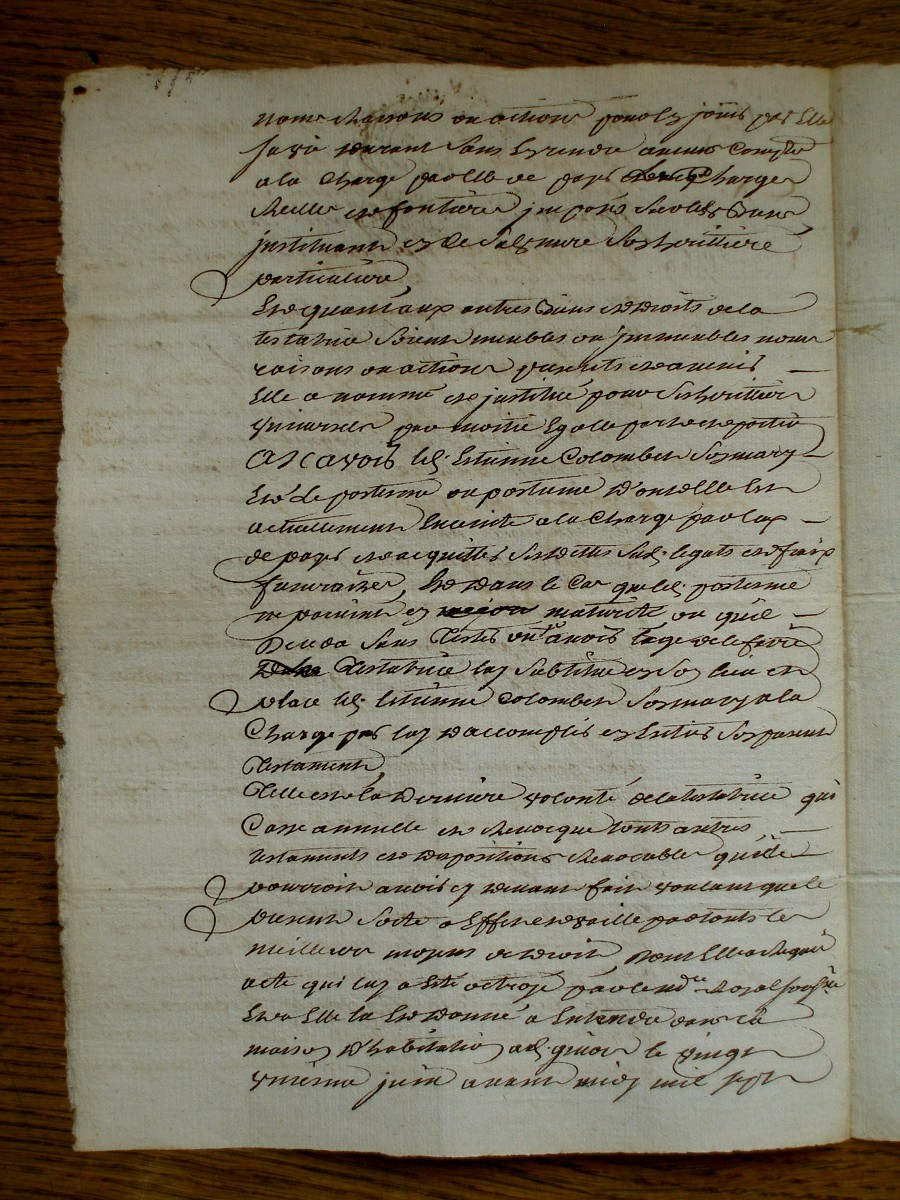 noms raisons ou actions pour les jouir par Elle
sa vie durant sans En rendre aucun compte
a la charge par Elle de payer charges
Reelles et fontieres imposés sur les biens
instituant en de sa heritiere
particuliere
Et quant aux autres biens et droits de la
testatrice Soient meubles ou immeubles noms
raisons ou actions presents et avenir
Elle a nommé et jnstitué pour Ses heritiers
universels par moitié Egalle part et portion
ASCavoir led. Estienne Colomber Son mary
Et le postume ou postume d'ont elle Est
actuellement Enceinte a la Charge par Eux
de payer et acquitter Ses dettes Susd. legats et fraix
funeraires, Et dans le Cas que led. postume
ne parvint en maturité ou quil
Deceda sans Tester ou avoir l'age de le faire
Testatrice luy Subtitue en Son lieu et
place led. Estienne Colomber Son mary a la
Charge par luy d'accomplir en Entier Son present
Testament
Telle est la Derniere volonté de la testatrice qui
Casse annulle et Revocque touts autres
testaments et dispositions Revocables quelle
pourroit avoir cy devant fait voulant que le
present Sorte a Effet et vaille par touts les
meilleurs moyens de droit Dont Elle a Requis
acte qui luy a Esté octroyé par le nd.re Royal sousg.né
Et a Elle lu Et donné a Entendre dans la
maison d'habitation le vingt
unieme juin avant midy mil sept